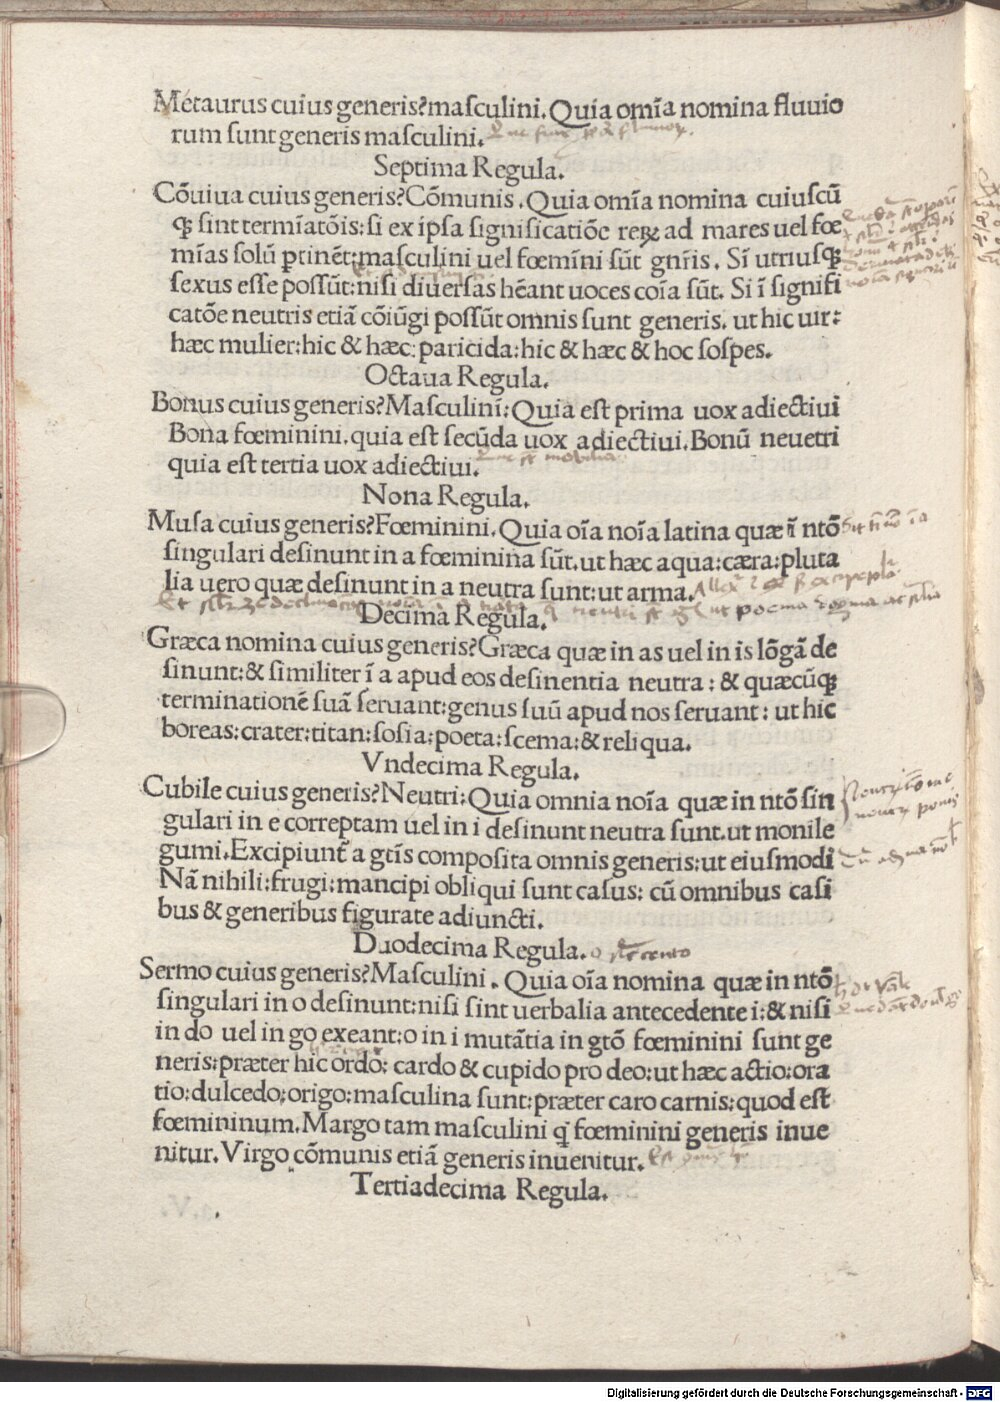 Metaurus cuius generis?maſculini. Quia om̄ia nomina fluuio
rum ſunt generis maſculini.
Septima Regula.
Cōuiua cuius generis?Cōmunis. Quia om̄ia nomina cuiuſcū
qꝫ ſint termīatōis:ſi ex ipſa ſignificatiōe reꝝ ad mares uel fœ
mīas ſolū ꝑtinēt:maſculini uel fœmini ſūt gn̄ris. Si utriuſqꝫ
ſexus eſſe poſſūt:niſi diuerſas hēant uoces cōīa ſūt. Si ī ſignifi
catōe neutris etiā cōiūgi poſſūt omnis ſunt generis. ut hic uir:
hæc mulier:hic & hæc paricida:hic & hæc & hoc ſoſpes.
Octaua Regula.
Bonus cuius generis?Maſculini:Quia eſt prima uox adiectiui
Bona fœminini.quia eſt ſecūda uox adiectiui.Bonū neuetri
quia eſt tertia uox adiectiui.
Nona Regula.
Muſa cuius generis?Fœminini.Quia oīa noīa latina quæ ī ntō
ſingulari deſinunt in a fœminina ſūt.ut hæc aqua:cæra:pluta
lia uero quæ deſinunt in a neutra ſunt:ut arma.
Decima Regula.
Græca nomina cuius generis?Græca quæ in as uel in is lōgā de
ſinunt:& ſimiliter ī a apud eos deſinentia neutra:& quæcūqꝫ
terminationē ſuā ſeruant:genus ſuū apud nos ſeruant:ut hic
boreas:crater:titan:ſoſia:poeta:ſcema:& reliqua.
Vndecima Regula.
Cubile cuius generis?Neutri:Quia omnia noīa quæ in ntō ſin
gulari in e correptam uel in i deſinunt neutra ſunt.ut monile
gumi.Excipiunt̄ a gtīs compoſita omnis generis:ut eiuſmodi
Nā nihili:frugi:mancipi obliqui ſunt caſus: cū omnibus caſi
bus & generibus figurate adiuncti.
Duodecima Regula.
Sermo cuius generis?Maſculini. Quia oīa nomina quæ in ntō
ſingulari in o deſinunt:niſi ſint uerbalia antecedente i:& niſi
in do uel in go exeant:o in i mutātia in gtō fœminini ſunt ge
neris:præter hic ordo: cardo & cupido pro deo:ut hæc actio:ora
tio:dulcedo:origo:maſculina ſunt:præter caro carnis:quod eſt
fœmininum.Margo tam maſculini q̄ fœminini generis inue
nitur.Virgo cōmunis etiā generis inuenitur.
Tertiadecima Regula.
Digitalisierung gefördert durch die Deutsche Forschungsgemeinschaft - DFG